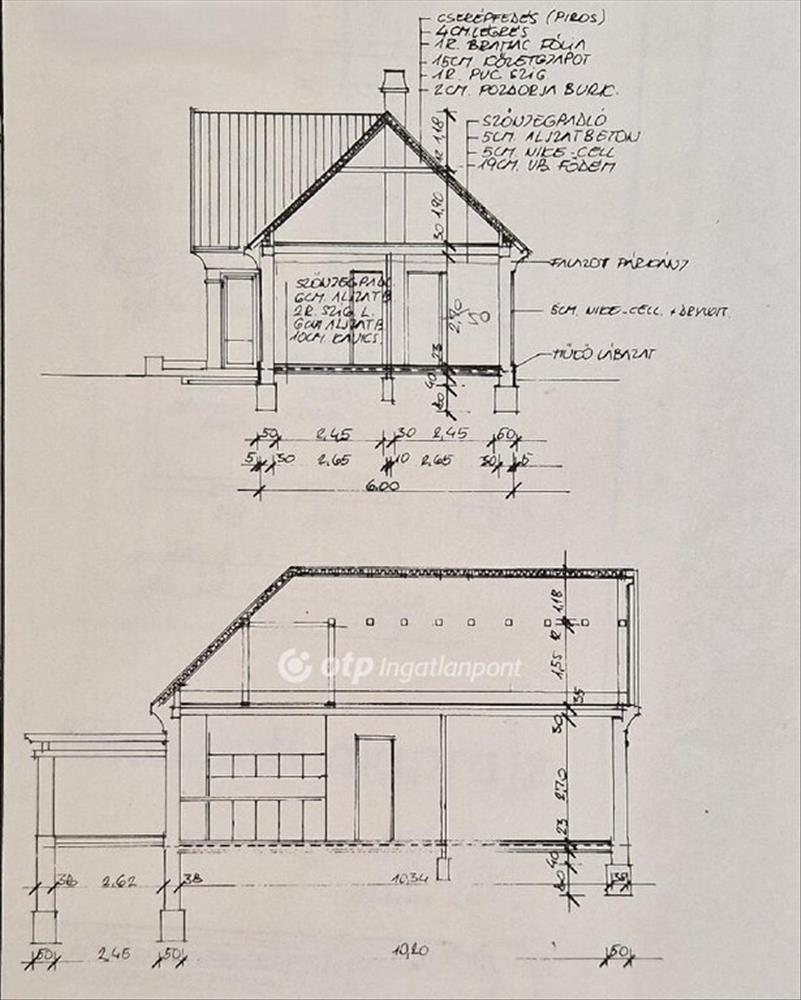 CSERÉPFEDÉS (PIROS)
4CM. LÉGRÉS
1R. BRAMAC FÓLIA
15CM. KŐZETGYAPOT
1R. PVC SZIG.
2CM. POZDORJA BURK.
SZŐNYEGPADLÓ
5CM. ALJZATBETON
5CM. NIKE-CELL
19CM. VB. FÖDÉM
12 1,18
30 1,90
FALAZOT PÁRKÁNY
SZŐNYEGPADL.
6CM. ALJZATB.
2R. SZIG L.
6CM ALJZATB.
10CM. KAVICS.
2,70
5CM. NIKE-CELL. + DRYVIT.
MŰKŐ LÁBAZAT
23
40
80
50 2,45 30 2,45 50
5 30 2,65 10 2,65 30 5
6.00
12 1,18
otp Ingatlanpont
1,55
35
30
2,70
23
40
80
38 2,62 38 10,34 38
50 2,45 50 10,20 50